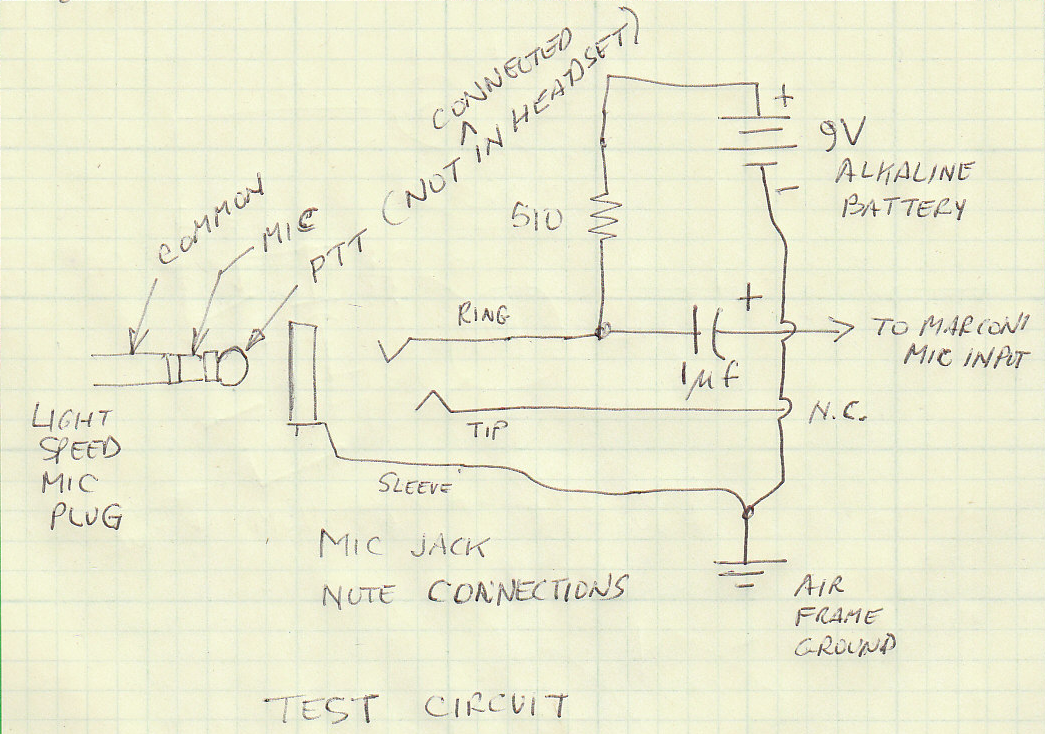 CONNECTED
PTT (NOT ^ IN HEADSET)
COMMON
MIC
+
9V
ALKALINE
BATTERY
-
510
RING
+
1μf
TO MARCONI
MIC INPUT
TIP
N.C.
SLEEVE
LIGHT
SPEED
MIC
PLUG
MIC JACK
NOTE CONNECTIONS
AIR
FRAME
GROUND
TEST CIRCUIT